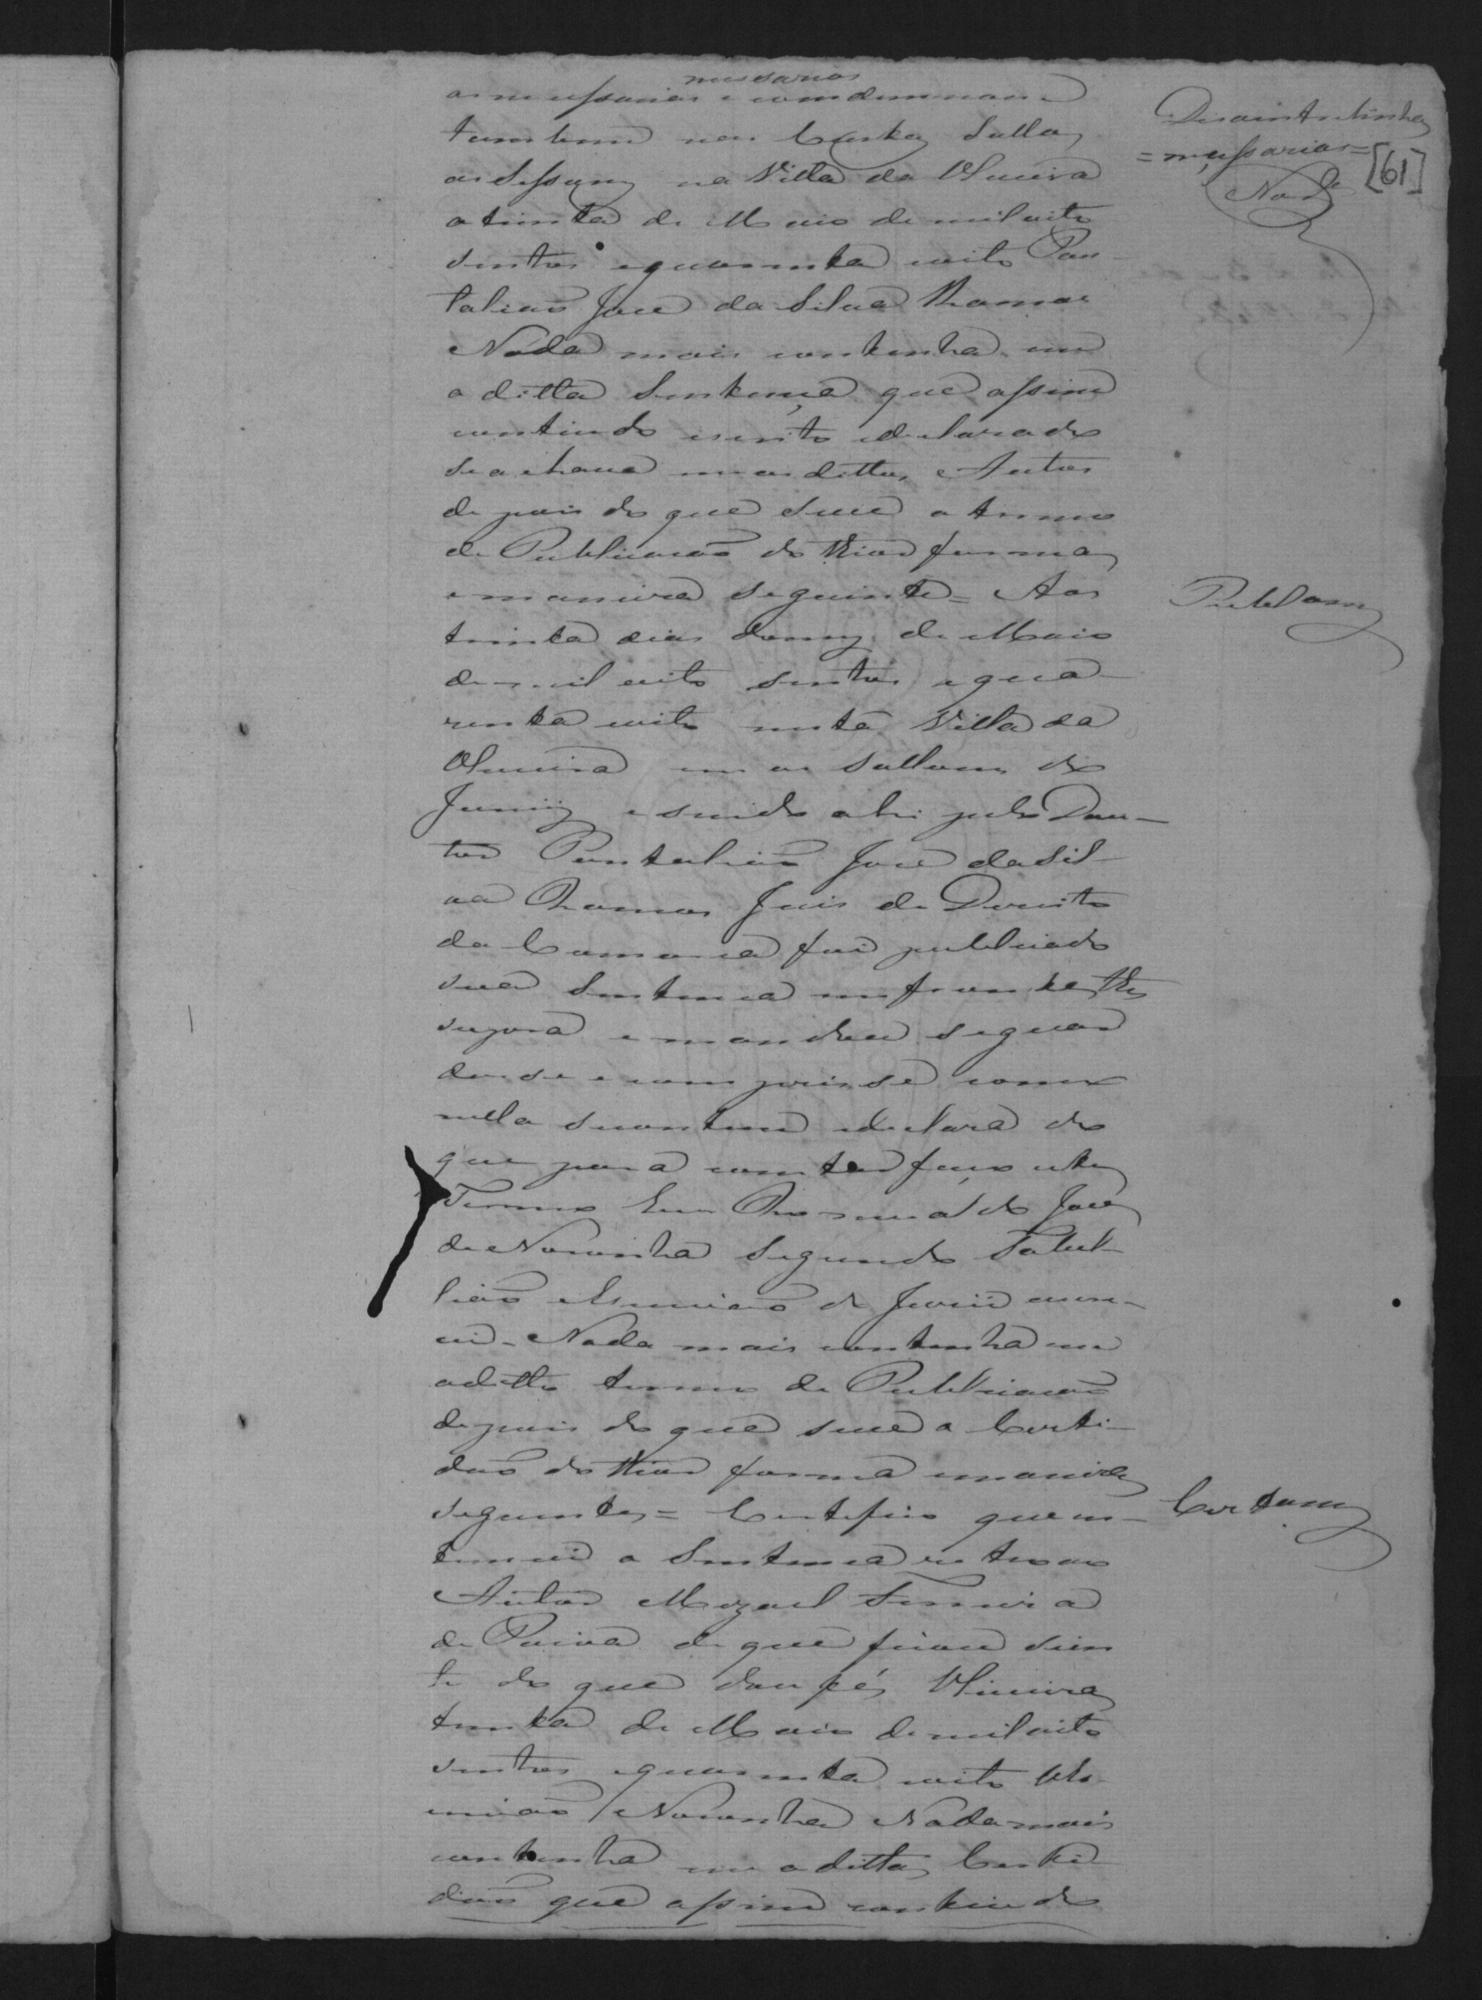 necessarias
as necessarias e comdemno ao
tambem nas Custas Salla
as Sessoins na Villa da Oliveira
a trinta de Maio de mil oito
sentos equarenta eoito Pan-
taliaõ Joze da Silva Ramos
Nada mais continha em
a ditta Sentença que assim
contiudo escrito edeclarado
se achava nos dittos Autos
depois do que sive o termo
de Publicacaõ do thior forma
emaneira seguinte = Aos
trinta dias do mez de Maio
de mil oito sentos equa-
renta eoito nesta Villa da
Oliveira em as Sallas do
Jury e sendo ahi pelo Dou-
tor Pantaliaõ Joze da Sil-
va Ramos Juis de Dereito
da Comarca foi publicado
sua Sentenca
supora emandou seguar
dase e comprise como
nella secontem edeclara do
que para constar faço este
Termo Eu Romualdo Joze
de Noronha Segundo Tabel-
liaõ eEscrivaõ do Jurii escre-
vi - Nada mais continha em
aditto termo de Publicacaõ
depois do que sive a Certi-
daõ do thior forma emaneira
seguinte = Certefico que in-
timei a Sentenca retro ao
Autor Mizael Ferreira
de Paiva de que ficou sien
te do que dou fé Oliveira
trinta de Maio demil oito
sentos equarenta eoito O Es-
crivaõ Noronha Nada mais
continha em a ditta Certi-
daõ que assim contiudo
Desaintrelinha
= necessarias =
Nor.ª
[61]
Publicam
Certam